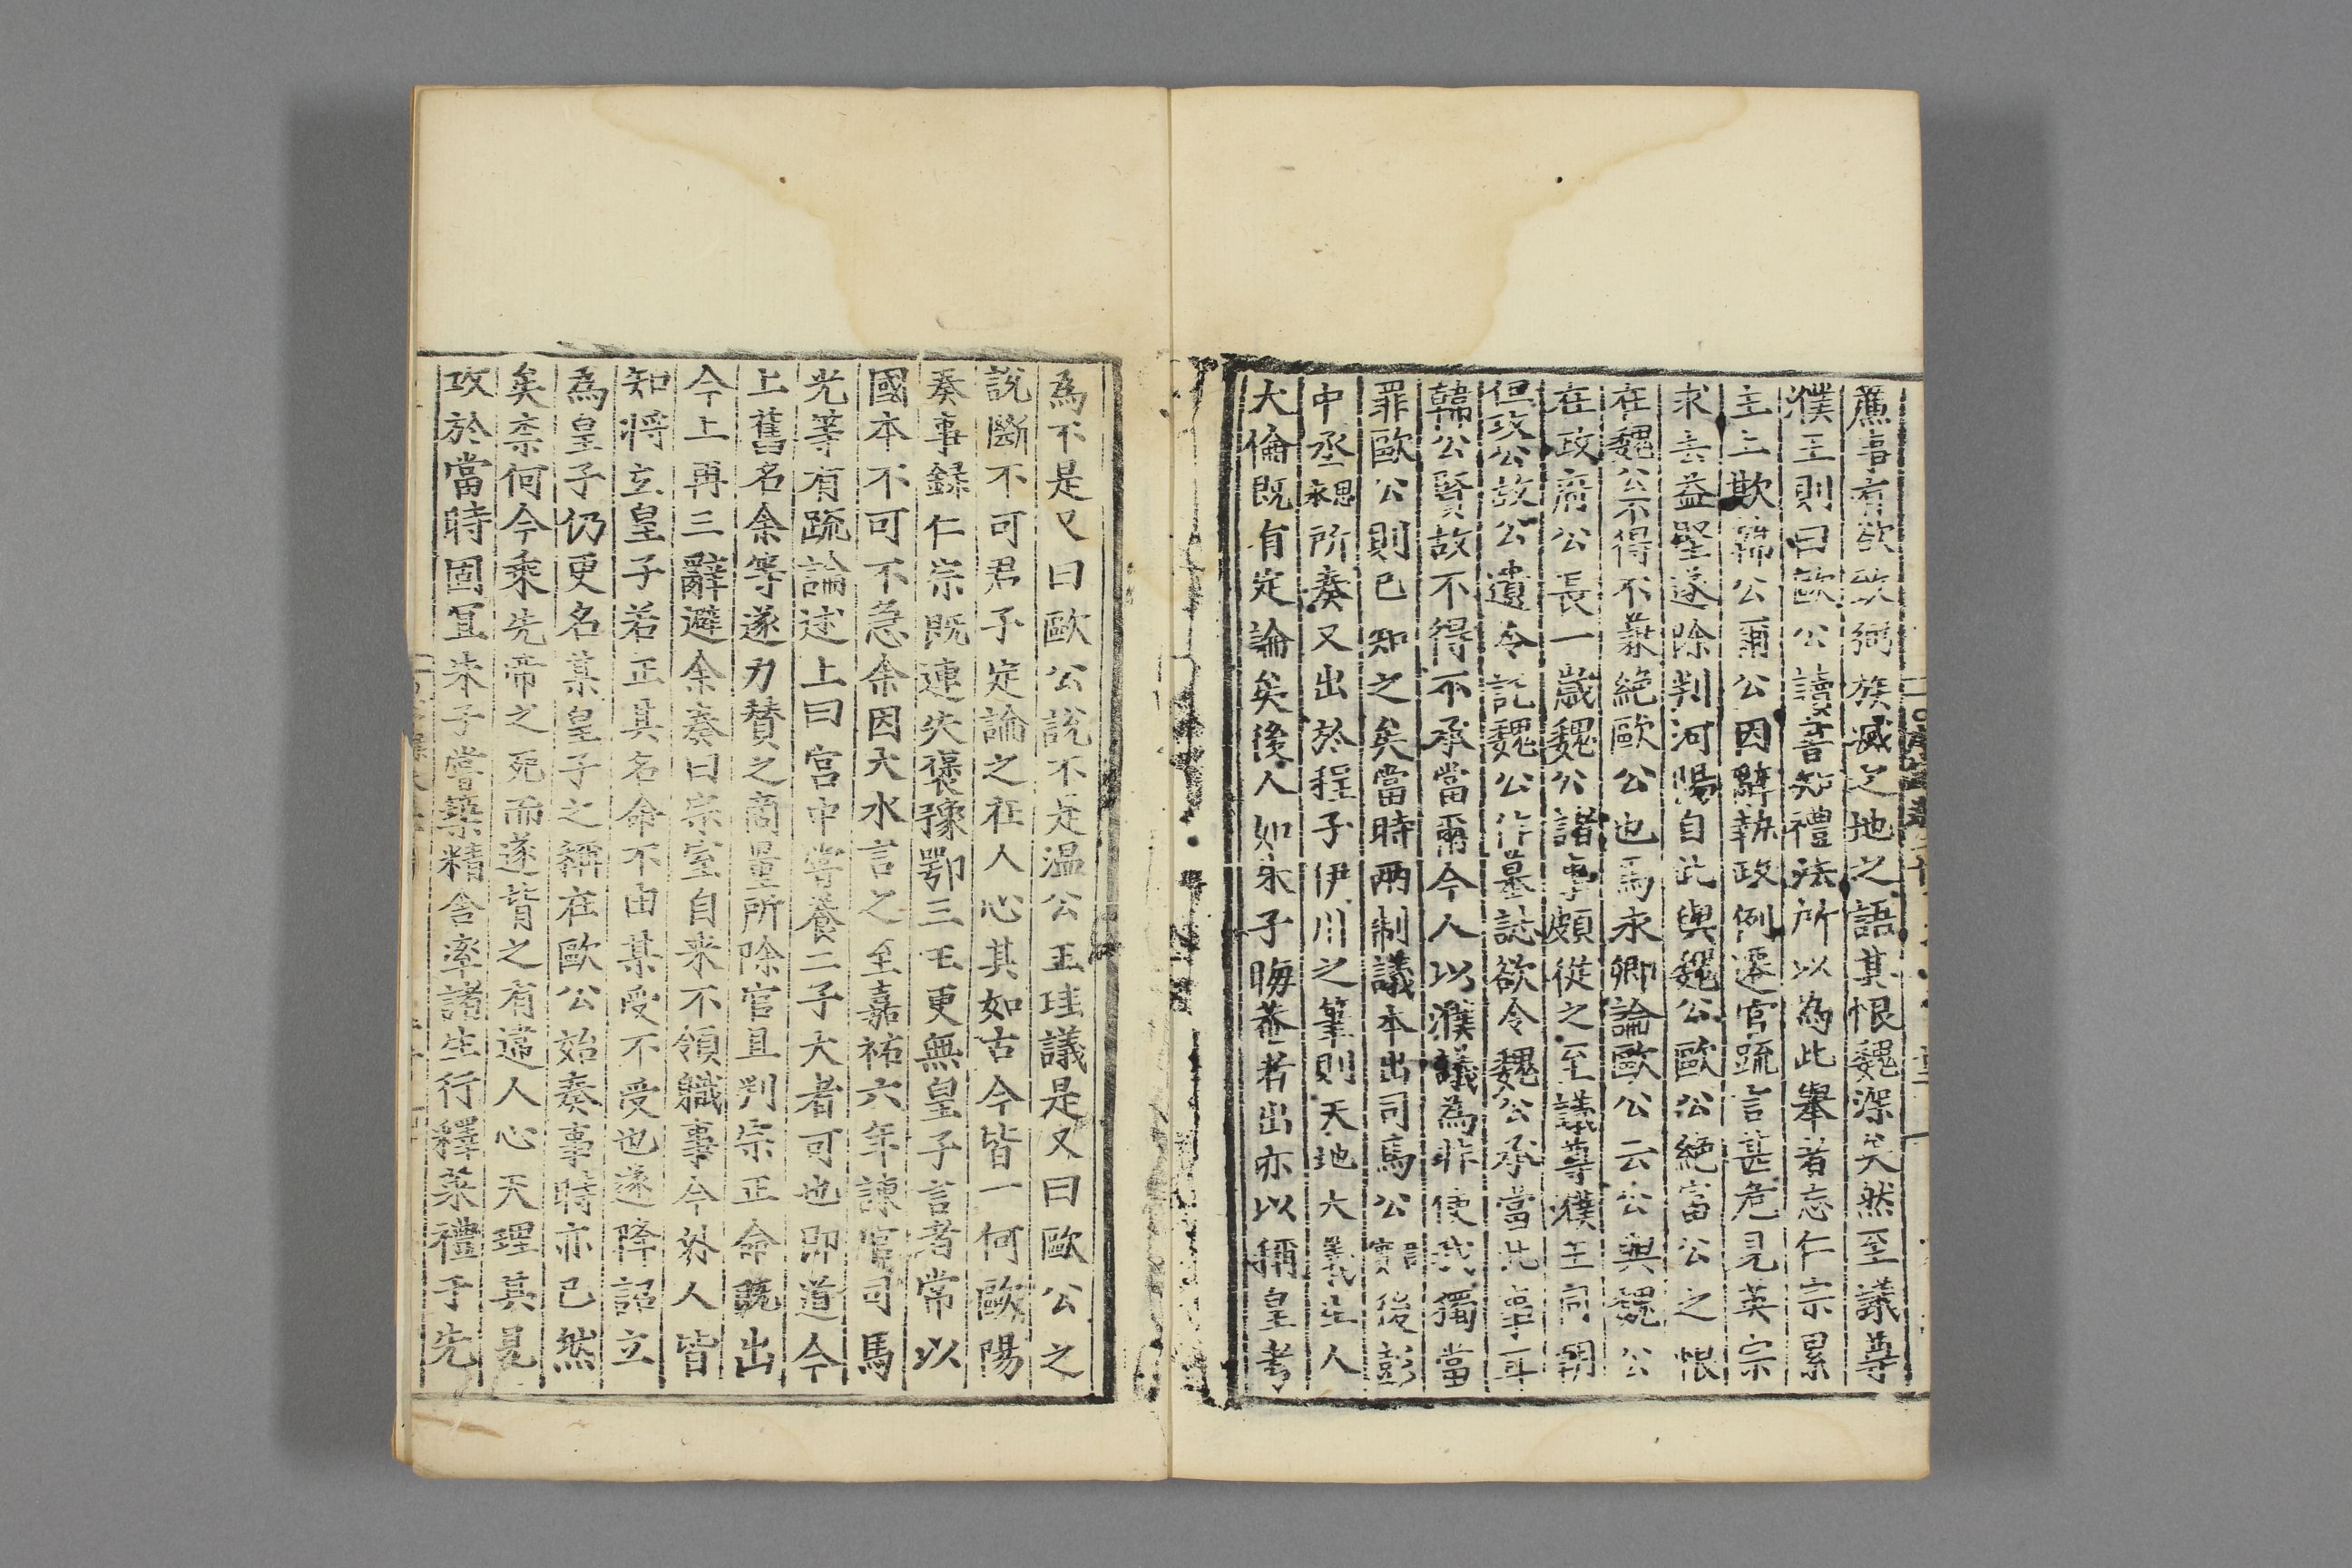 薦事有欲致觸族滅之地之語其恨魏深矣然至議尊
濮王則曰歐公讀書知禮法所以為此舉者忘仁宗累
主上欺韓公爾公因辭執政例遷官疏言甚危見英宗
求去益堅遂除判河陽自此與魏公歐公絕富公之恨
在魏公不得不兼絕歐公也馬永卿論歐公云公與魏公
在政府公長一歲魏公諸事頗從之至議尊濮王同朝
但攻公故公遺令託魏公作墓誌欲令魏公承當此事耳
韓公賢故不得不承當爾今人以濮議為非使我獨當
罪歐公則已知之矣當時兩制議本出司馬公實後彭
中丞思永所奏又出於程子伊川之筆則天地大義生人
大倫既有定論矣後人如朱子晦菴者出亦以稱皇考
為不是又曰歐公說不是温公王珪議是又曰歐公之
說斷不可君子定論之在人心其如古今皆一何歐陽
奏事錄仁宗既連失褒豫鄂三王更無皇子言者常以
國本不可不急余因大水言之至嘉祐六年諫官司馬
光等有疏論述上曰宮中嘗養二子大者可也即道今
上舊名余等遂力贊之商量所除官且判宗正命既出
今上再三辭避余奏曰宗室自来不領職事今外人皆
知將立皇子若正其名命不由某受不受也遂降詔立
為皇子仍更名某皇子之稱在歐公始奏事時亦已然
矣柰何今乘先帝之死而遂背之有違人心天理莫見
攻於當時固冝朱子嘗築精舍率諸生行釋菜禮于先